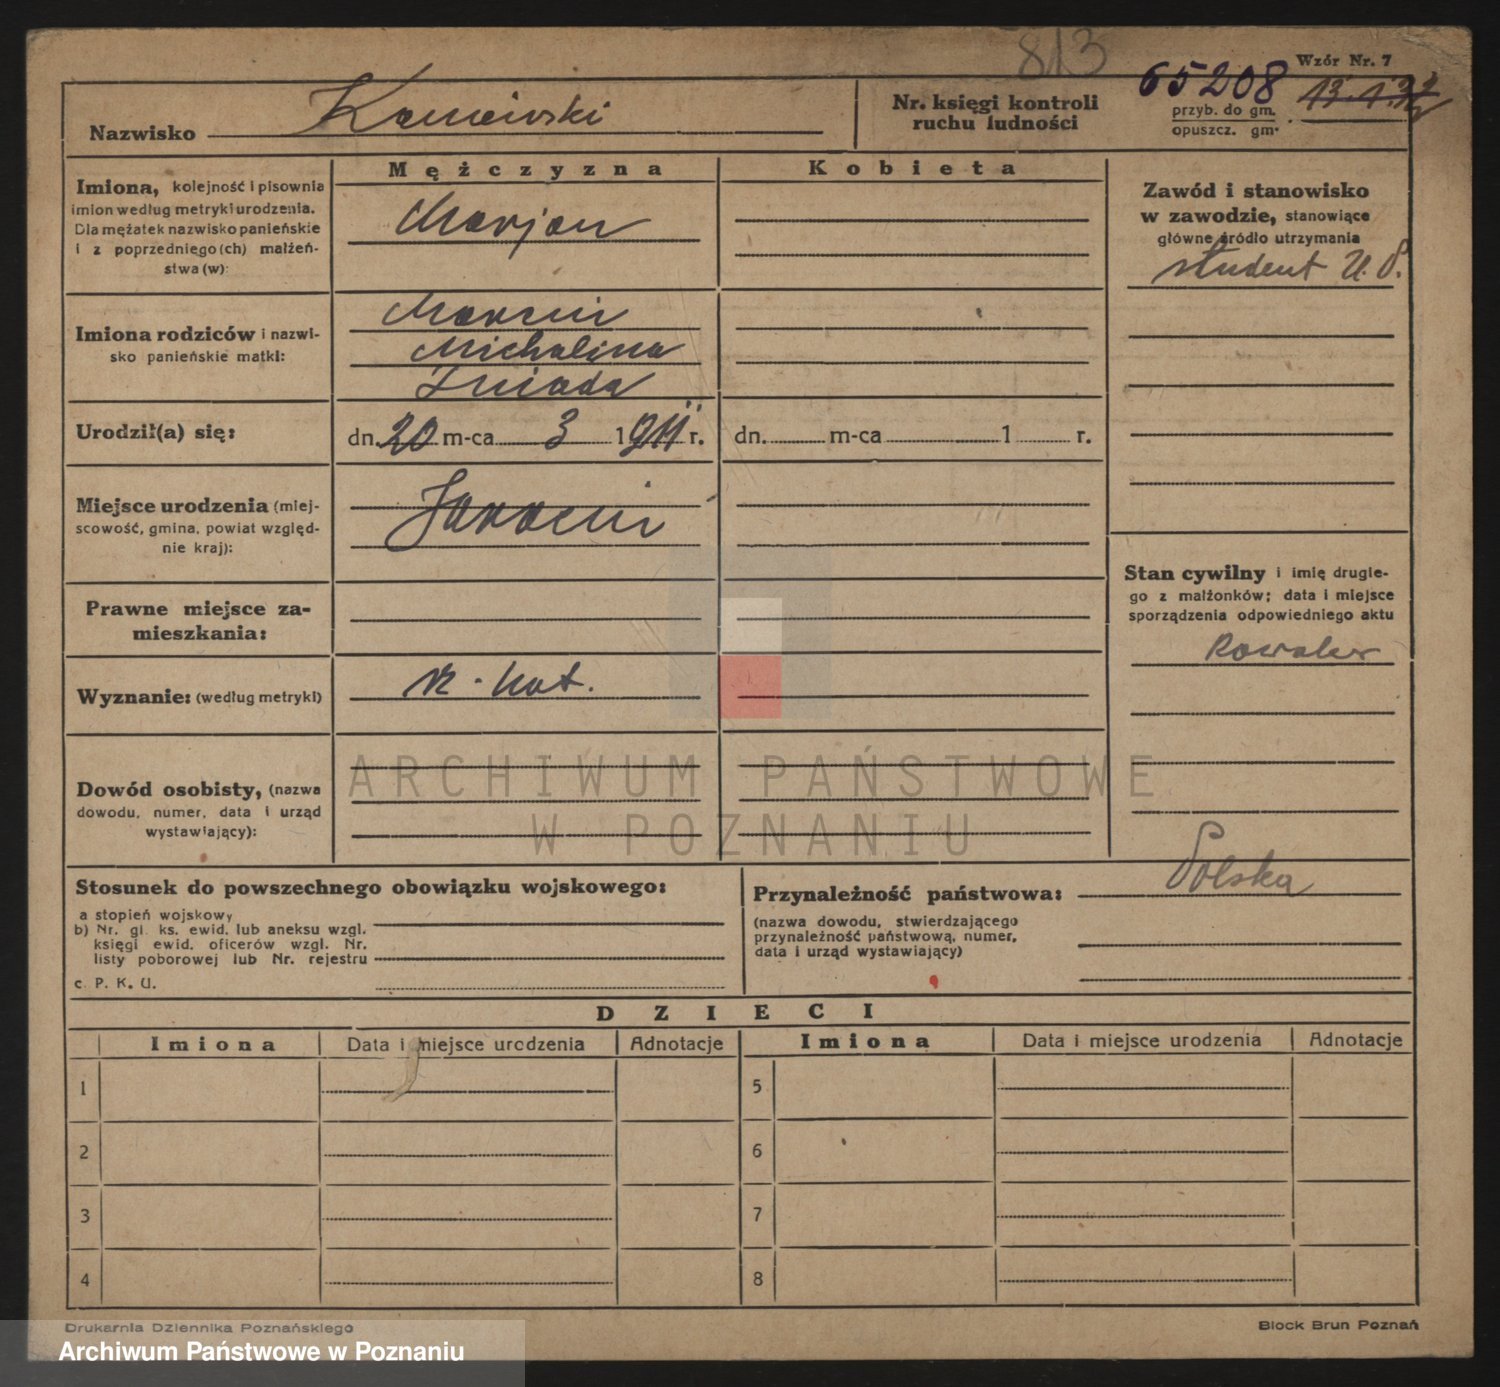 813
Wzór Nr. 7
Nazwisko
Nr. księgi kontroli
ruchu ludności
65208
przyb. do gm.
opuszcz. gm.
Mężczyzna
Kobieta
Imiona, kolejność i pisownia
imion według metryki urodzenia.
Dla mężatek nazwisko panieńskie
i z poprzedniego (ch) małżeń-
stwa (w):
Marjan
Zawód i stanowisko
w zawodzie, stanowiące
główne źródło utrzymania
student U. P.
Imiona rodziców i nazwi-
sko panieńskie matki:
Marcin
Michalina
Śniada
Urodził(a) się:
dn. 20 m-ca 3 1911 r.
dn. m-ca 1 r.
Miejsce urodzenia (miej-
scowość, gmina, powiat względ-
nie kraj):
Jarocin
Stan cywilny i imię drugie-
go z małżonków; data i miejsce
sporządzenia odpowiedniego aktu
kawaler
Prawne miejsce za-
mieszkania:
Wyznanie: (według metryki)
rz. kat.
Dowód osobisty, (nazwa
dowodu, numer, data i urząd
wystawiający):
ARCHIWUM PAŃSTWOWE
W POZNANIU
Stosunek do powszechnego obowiązku wojskowego:
a stopień wojskowy
b) Nr. gł. ks. ewid. lub aneksu wzgl.
księgi ewid. oficerów wzgl. Nr.
listy poborowej lub Nr. rejestru
c. P. K. U.
Przynależność państwowa:
Polska
(nazwa dowodu, stwierdzającego
przynależność państwową, numer,
data i urząd wystawiający)
DZIECI
Imiona Data i miejsce urodzenia Adnotacje Imiona Data i miejsce urodzenia Adnotacje
1 5
2 6
3 7
4 8
Drukarnia Dziennika Poznańskiego
Block Brun Poznań
Archiwum Państwowe w Poznaniu